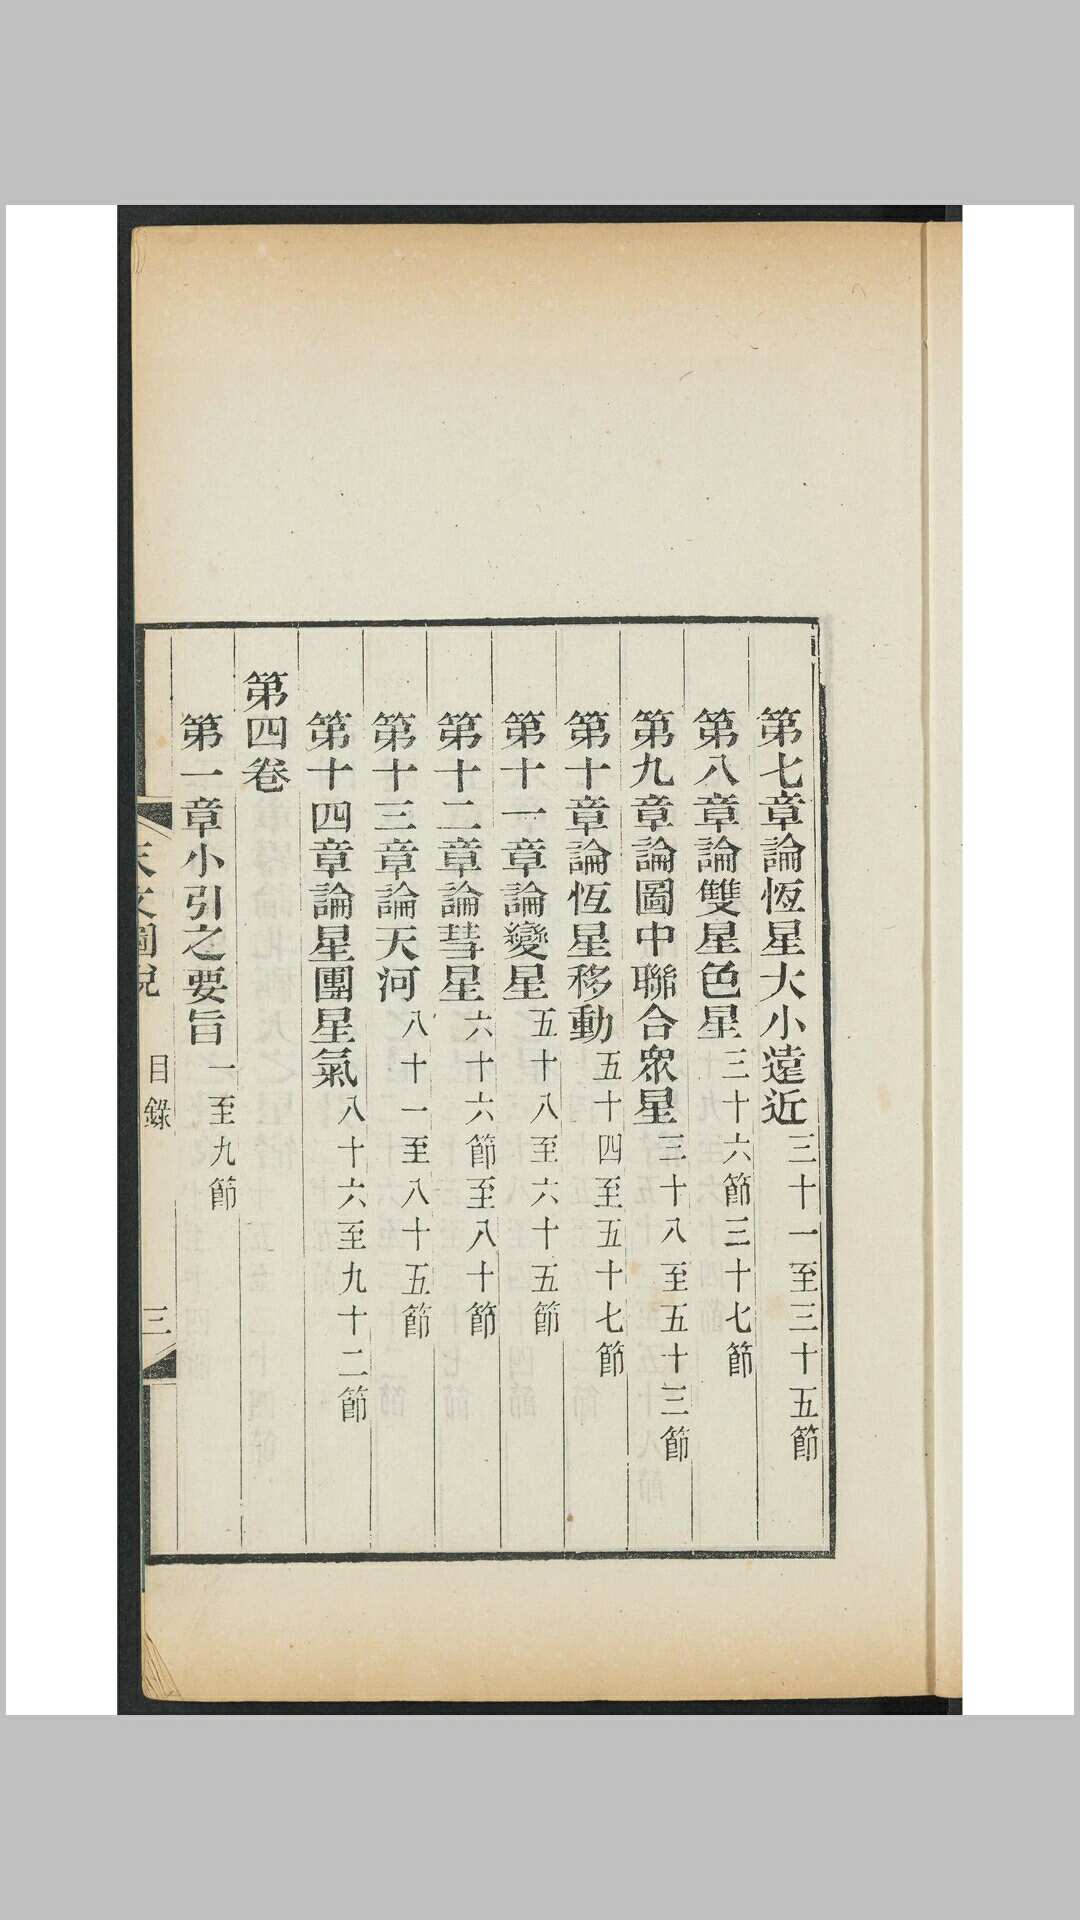 第七章論恆星大小遠近 三十一至三十五節
第八章論雙星色星 三十六節三十七節
第九章論圖中聯合眾星 三十八至五十三節
第十章論恆星移動 五十四至五十七節
第十一章論變星 五十八至六十五節
第十二章論彗星 六十六節至八十節
第十三章論天河 八十一至八十五節
第十四章論星團星氣 八十六至九十二節
第四卷
第一章小引之要旨 一至九節
天文圖說 目錄 三